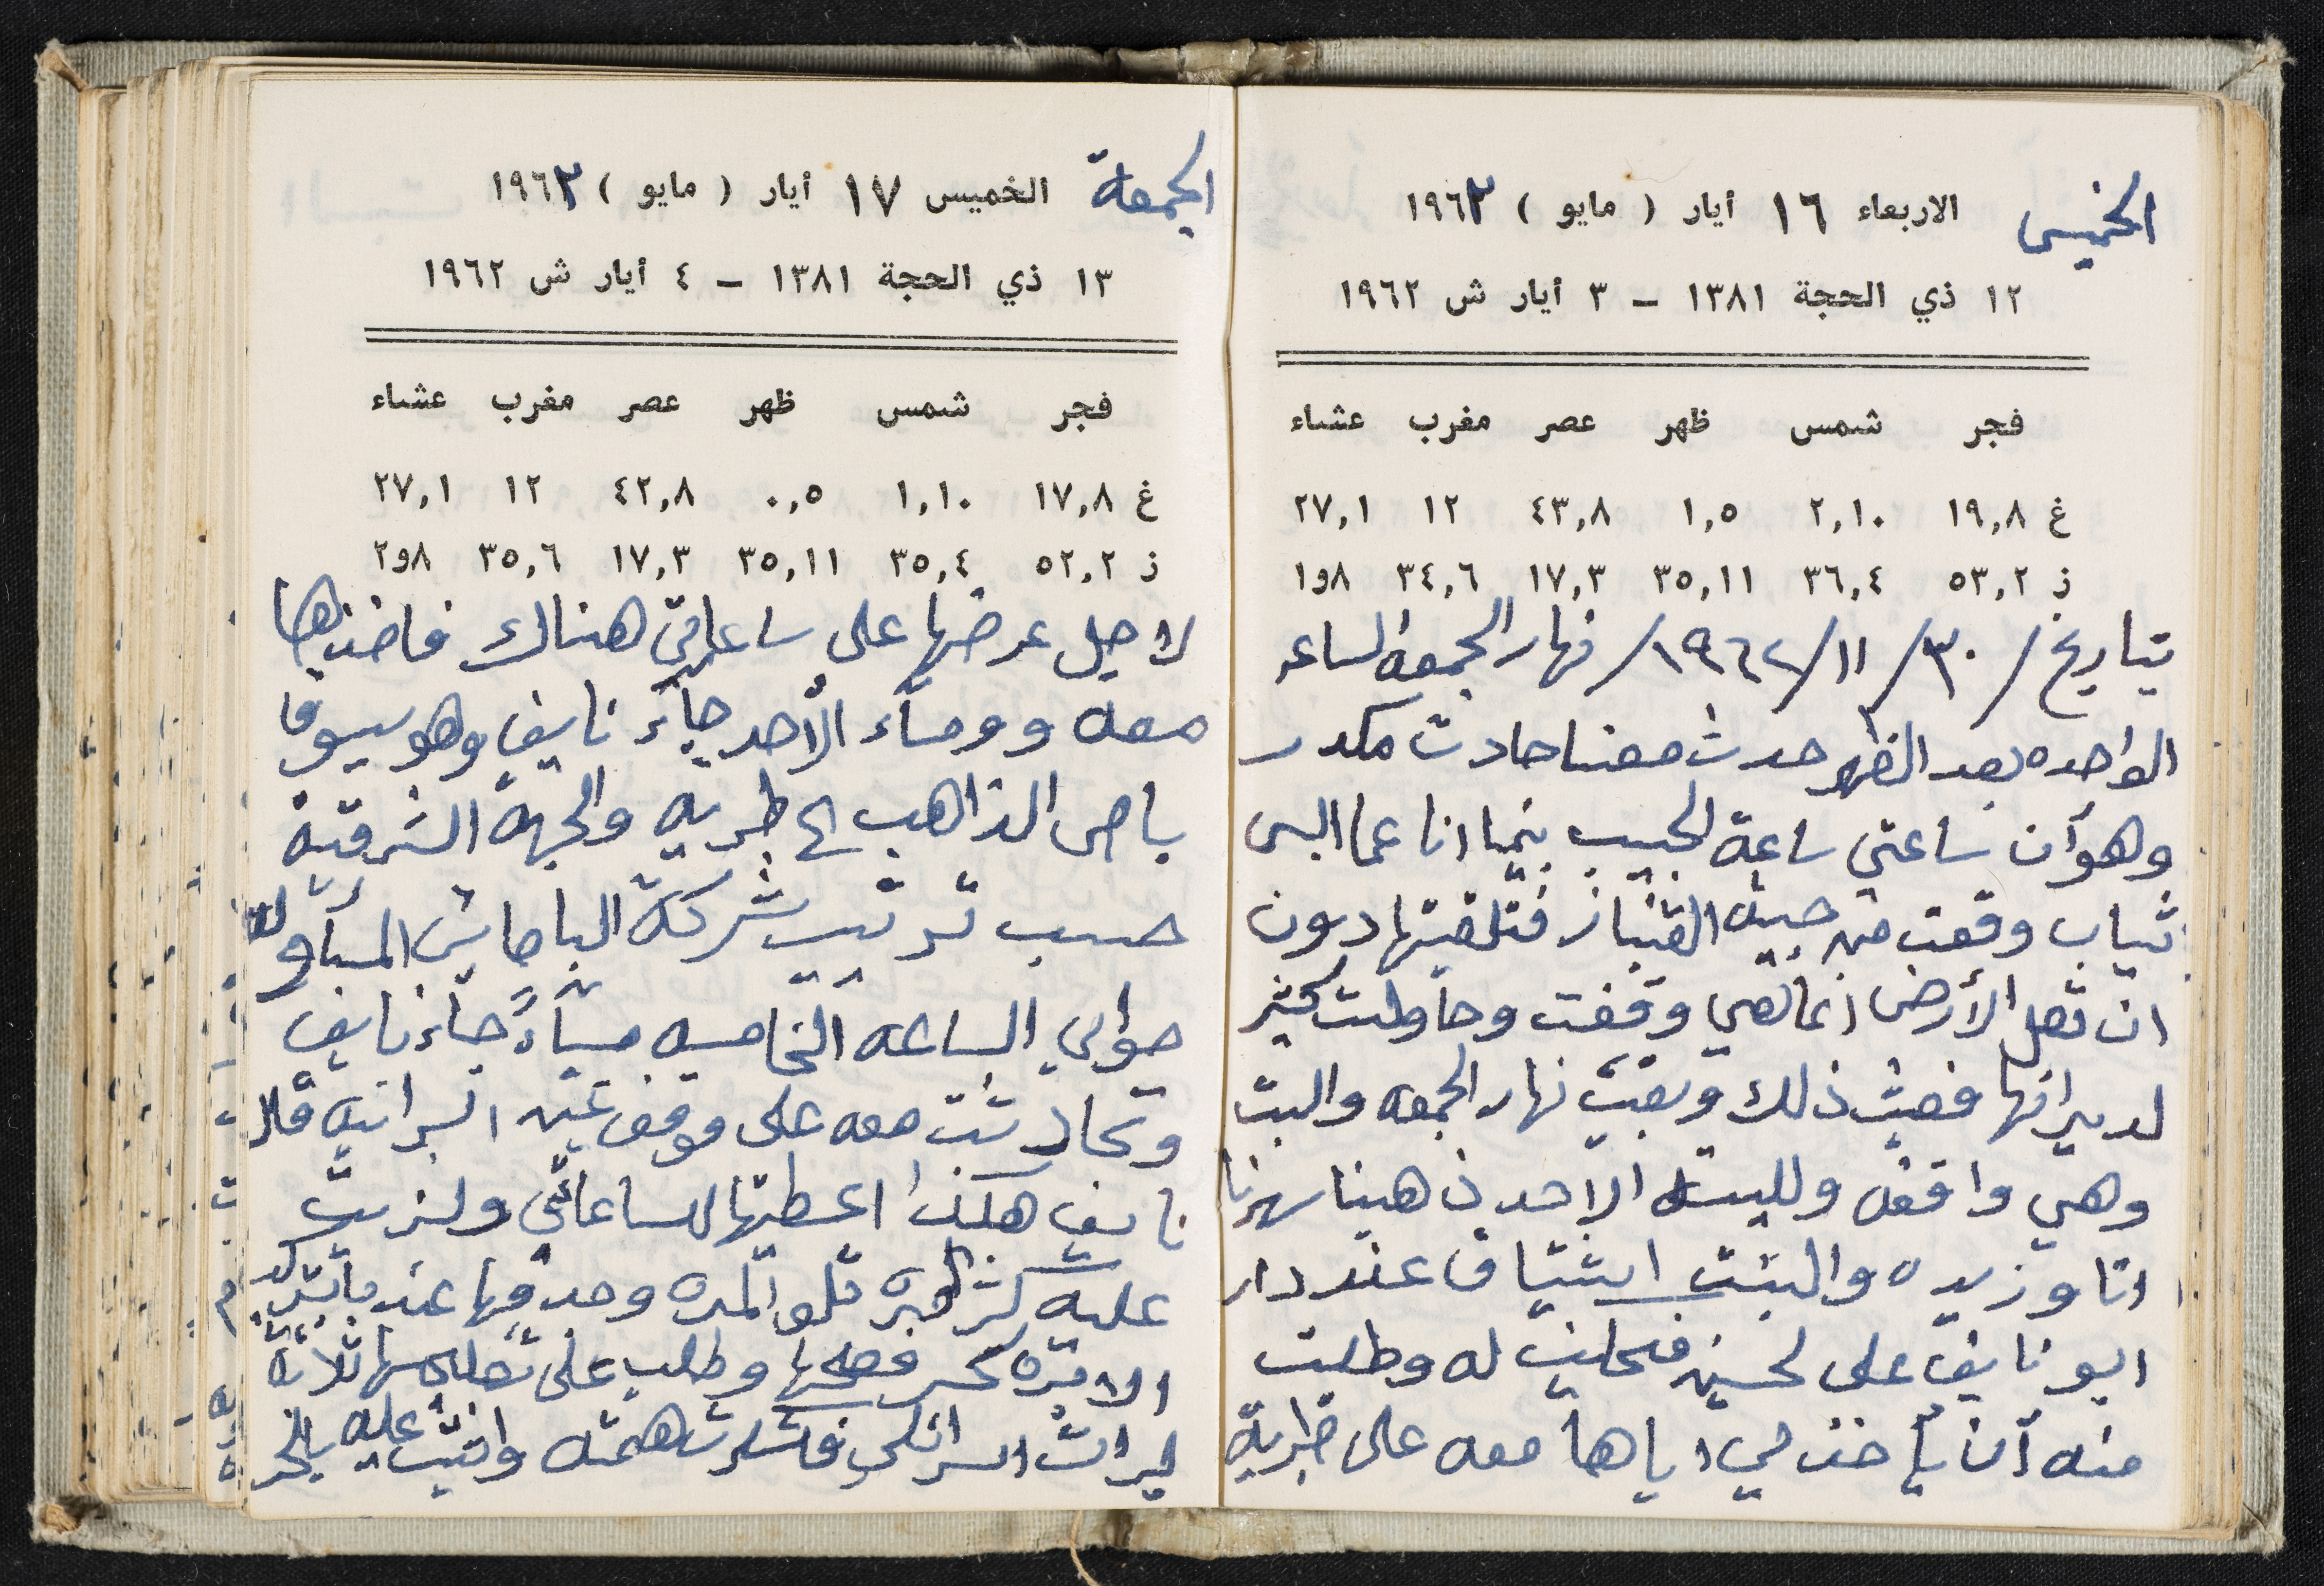 الخميس الاربعاء ١٦ أيار ( مايو ) ١٩٦٣
١٢ ذي الحجة ١٣٨١ – ٣ أيار ش ١٩٦٢
فجر شمس ظهر عصر مغرب عشاء
غ ١٩,٨ ٢,١٠ ١,٥ ٤٣,٨ ١٢ ٢٧,١
ز ٥٣,٢ ٣٦,٤ ٣٥,١١ ١٧,٣ ٣٤,٦ ٨و١
بتاريخ /٣٠/ ١١/ ١٩٦٢/ نهار الجمعه الساعه
الواحده بعد الظهر حدث معنا حادث مكدر
وهو أن ساعتي ساعة الجيب بينما انا عما البس
ثياب وقعت من جيبة القنباز فتلقيتها دون
ان تصل الأرض انما هي وقفت وحاولت كثير
لدير انها فعبث ذلك وبقيت نهار الجمعه والسبت
وهي واقفه ولليلة الاحد ذهبنا سهرنا
انا وزيده والبنت اشتياق عند دار
ابو نايف علي لحسين فحكيت له وطلبت
منه أن يأخذ لي اياها معه على طبرية
الجمعة الخميس ١٧ أيار ( مايو ) ١٩٦٣
١٣ ذي الحجة ١٣٨١ – ٤ أيار ش ١٩٦٢
فجر شمس ظهر عصر مغرب عشاء
غ ١٧,٨ ١,١٠ ٠,٥ ٤٢,٨ ١٢ ٢٧,١
ز ٥٢,٢ ٣٥,٤ ٣٥,١١ ١٧,٣ ٣٥,٦ ٨و٢
لاجل عرضها على ساعاتي هناك فاخذها
معه وومساء الأحد جاء نايف وهو يسوق
باص الذاهب الى طبريه والجهة الشرقية
حسب ترتيب شركة الباصات
حوالي الساعه الخامسه مساءً جاء نايف
وتحادثت معه على موقف عين البرانيه قال
نايف هكذا اعطيتها للساعاتي ولزيت
عليه كثر المره تلو المره وجد فيها عند
وطلب على تصليحها ثلاثة
ليرات اسرائلي فشكرت همته واثنيت عليه بالخير